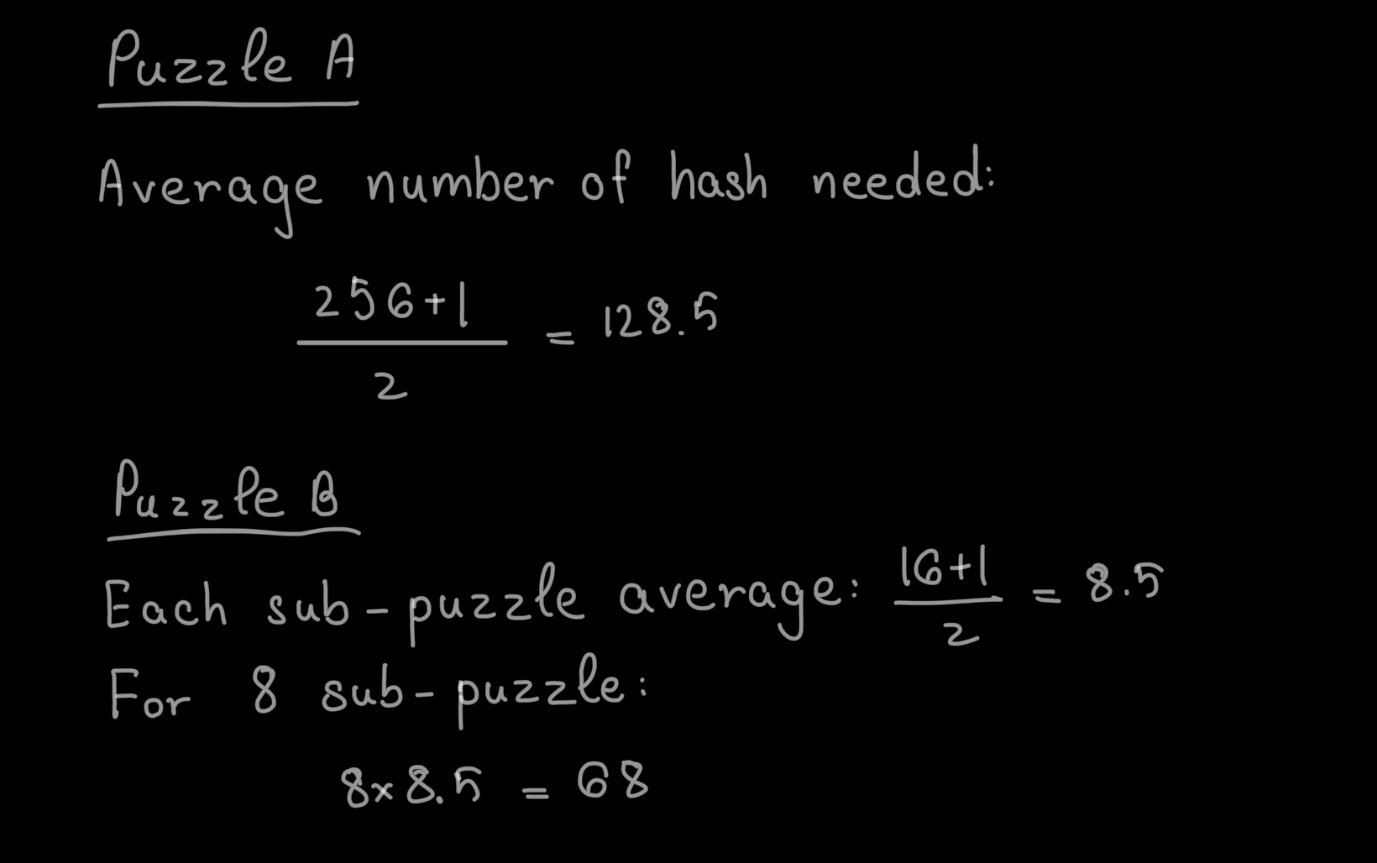 Puzzle A
Average number of hash needed:
256+1
2
= 128.5
Puzzle B
Each sub-puzzle average: 16+1
2
= 8.5
For 8 sub-puzzle:
8×8.5 = 68